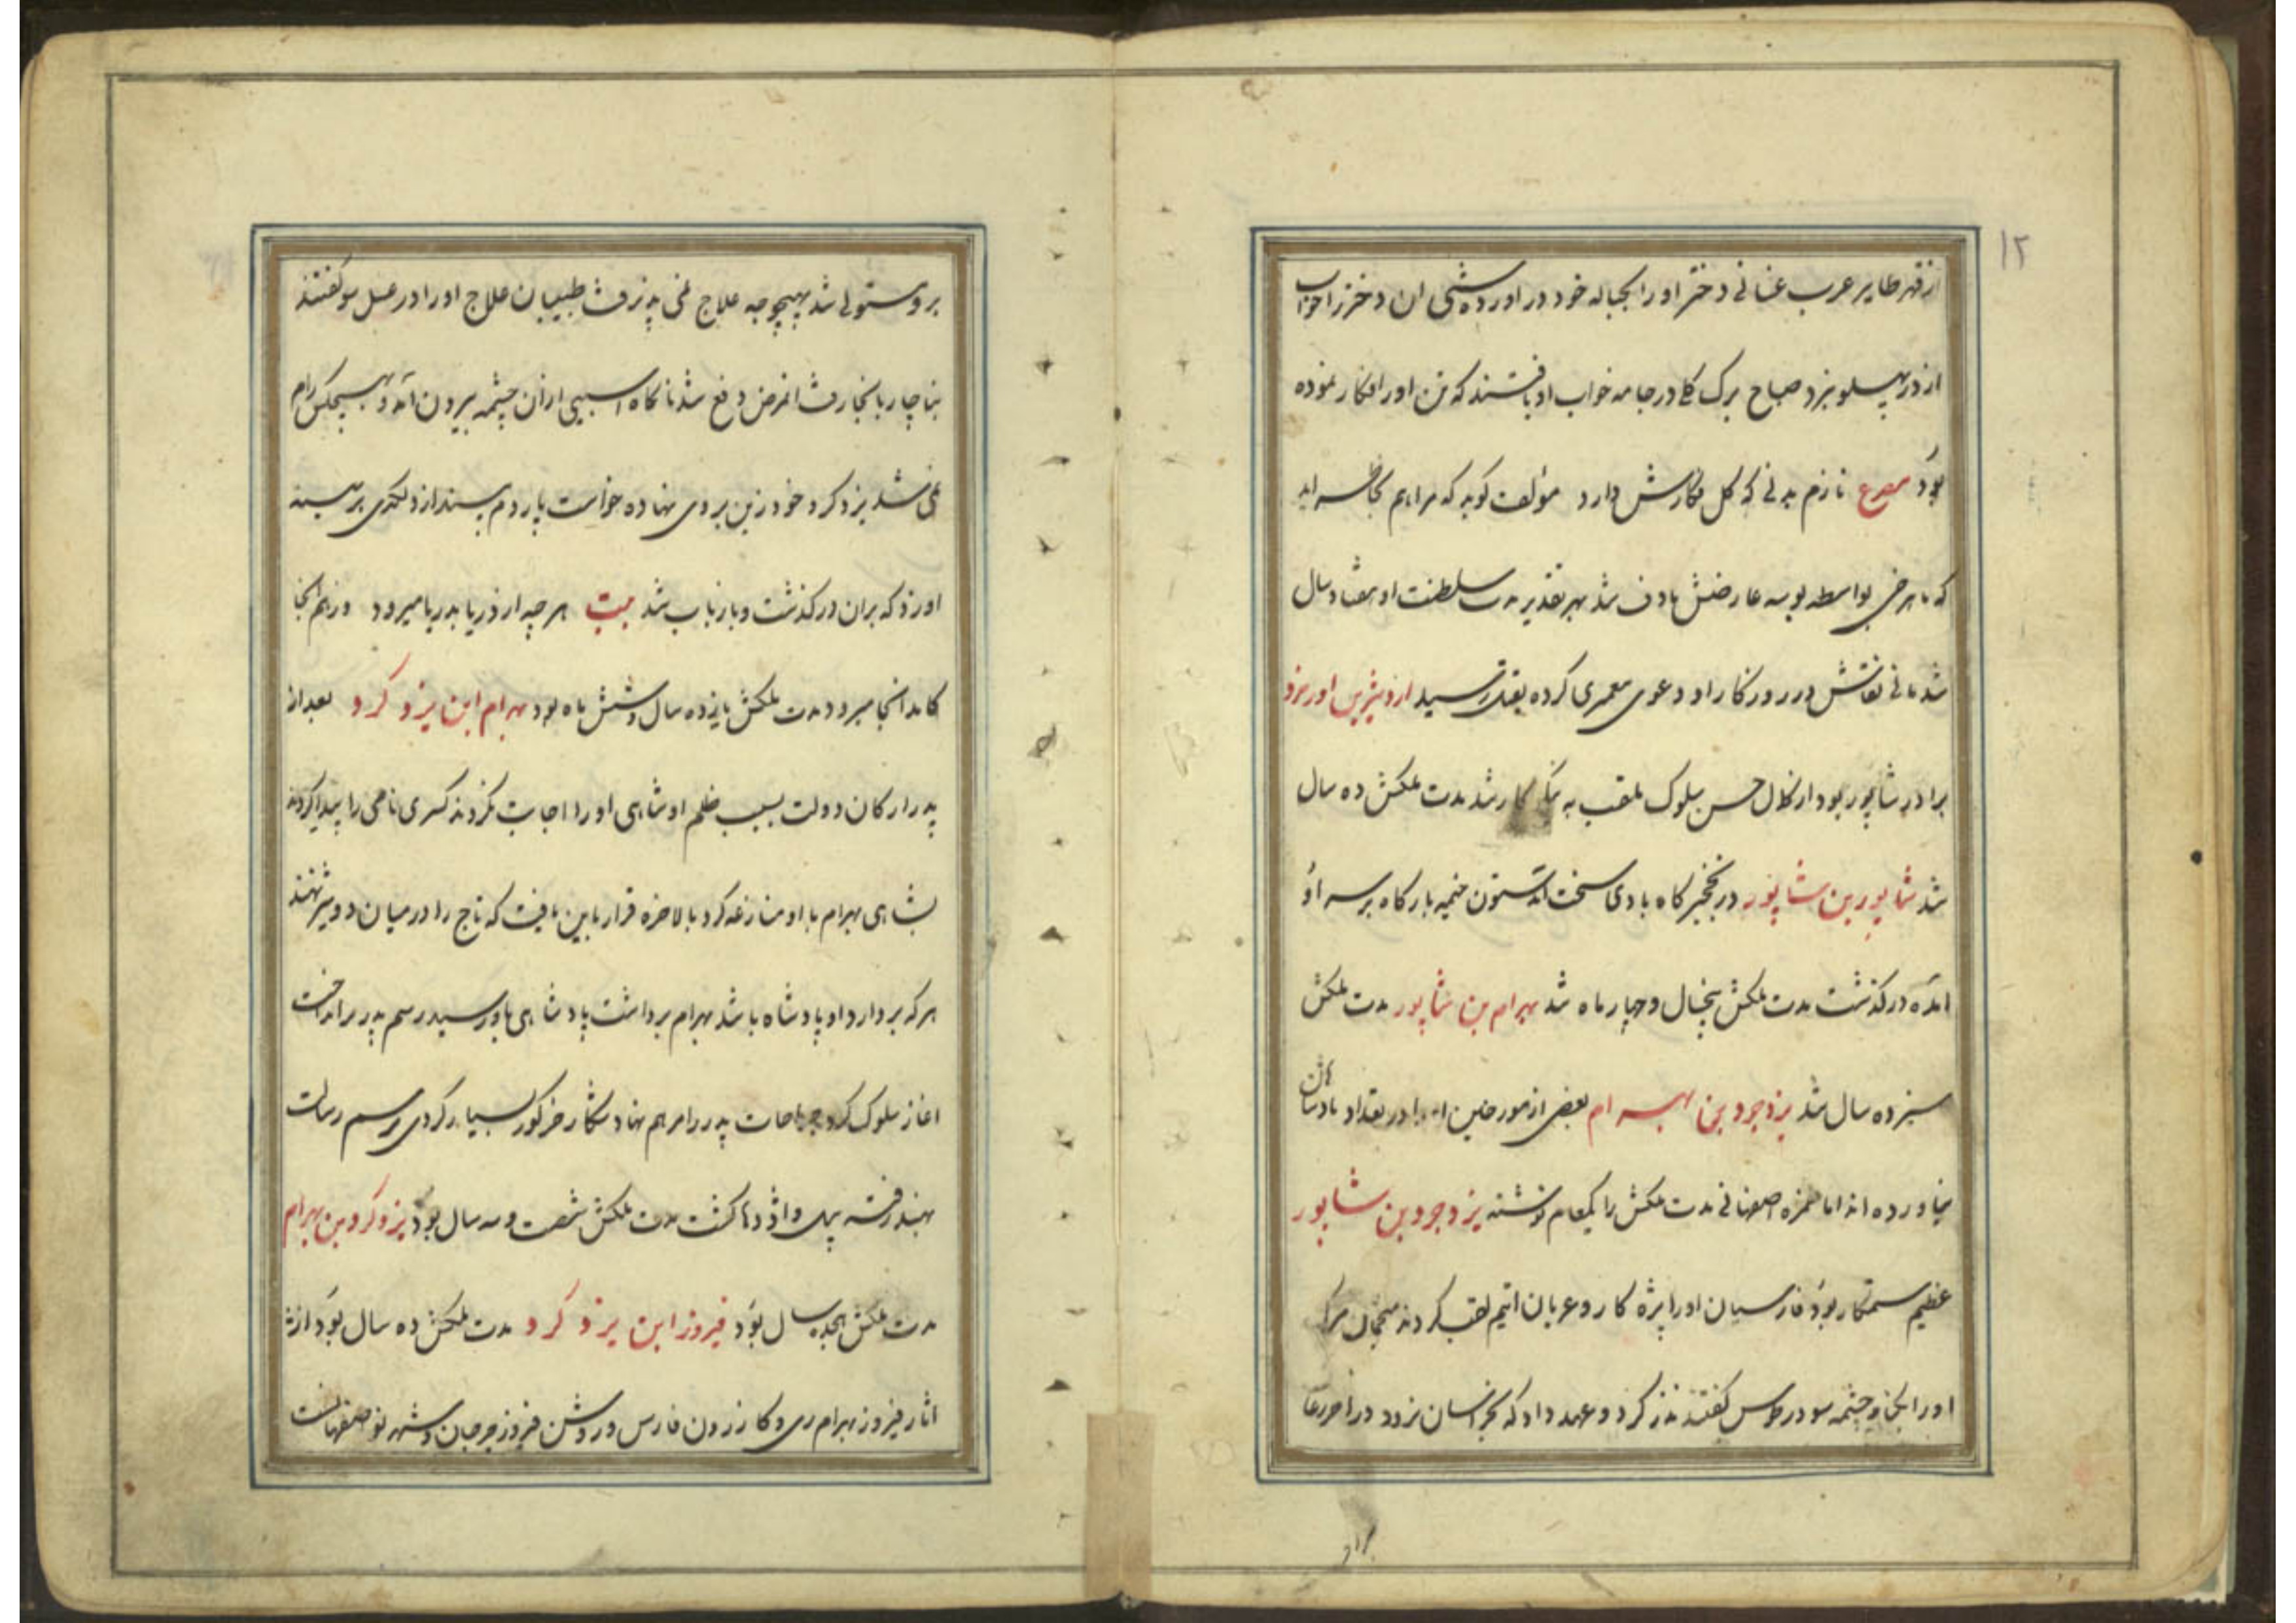 ۱۲
از قهر طایر عرب غسانی دختر او را بحباله خود در اورده شبی ان دختر را خواب
از درد پهلو نبرد صباح برک کلی در جامه خواب او یافتند که تن او را افکار نموده
بود مصرع نازم بدنی که کل فکارش دارد مؤلف کوید که مرا هم بخاطر رسد اید
که ماهرخی بواسطه بوسه عارضش ماوف شد بهر تقدیر مدت سلطنت او هفتاد سال
شد مانی نقاش در روزکار او دعوی پیغمبری کرده بقتل رسید اردشیر بن اورمزد
برادر شاپور بود از کمال حسن سلوک ملقب به نیکوکار شد مدت ملکش ده سال
شد شاپور بن شاپور در نخجیرکاه بادی سخت آمد ستون خیمه بارکاه بر سر او
امده درکذشت مدت ملکش پنجسال و چهار ماه شد بهرام بن شاپور مدت ملکش
سیزده سال شد یزدجرد بن بهرام بعضی از مورخین او را در تعداد پادشاهان
نیاورده اند اما حمزه اصفهانی مدت ملکش را یکسال نوشته یزدجرد بن شاپور
عظیم ستمکار بود فارسیان او را بزه کار و عربان اثیم لقب کردند منجمان مرک
او را بکنار چشمه سو در طوس کفتند نذر کرد و عهد داد که بخراسان نرود در آخر رعاف
براو
بر او مستولی شد بهیچوجه علاج نمی پذیرفت طبیبان علاج او را در غسل سو کفتند
بناچار بانجا رفت انمرض دفع شد ناکاه اسبی از آن چشمه بیرون آمد و بهیچکس رام
نمی شد یزدکرد خود زین بر وی نهاده خواست پاردم بیندازد لکدی بر سینه
او زد که بران درکذشت و باز باب شد بیت هر چه از دریا بدریا میرود از همانجا
کامد آنجا میرود مدت ملکش یازده سال و شش ماه بود بهرام ابن یزدکرد بعد از
پدر ارکان دولت بسبب ظلم او شاهی او را اجابت نکردند کسری نامی را پیدا کردند
بشاهی بهرام با او منازعه کرد بالاخره قرار باین یافت که تاج را در میان دو شیر نهند
هر که بردارد او پادشاه باشد بهرام برداشت پادشاهی باو رسید رسم پدر برانداخت
اغاز سلوک کرد جراحات پدر را مرهم نهاد شکار خر کور بسیار کردی برسم رسالت
بهند رفته پیل و اژدها کشت مدت ملکش شصت و سه سال بود یزدکرد بن بهرام
مدت ملکش هجده سال بود فیروز ابن یزدکرد مدت ملکش ده سال بود از
اثار فیروز بهرام ری و کازرون فارس و روشن فیروز جرجان و شهر نو اصفهانست